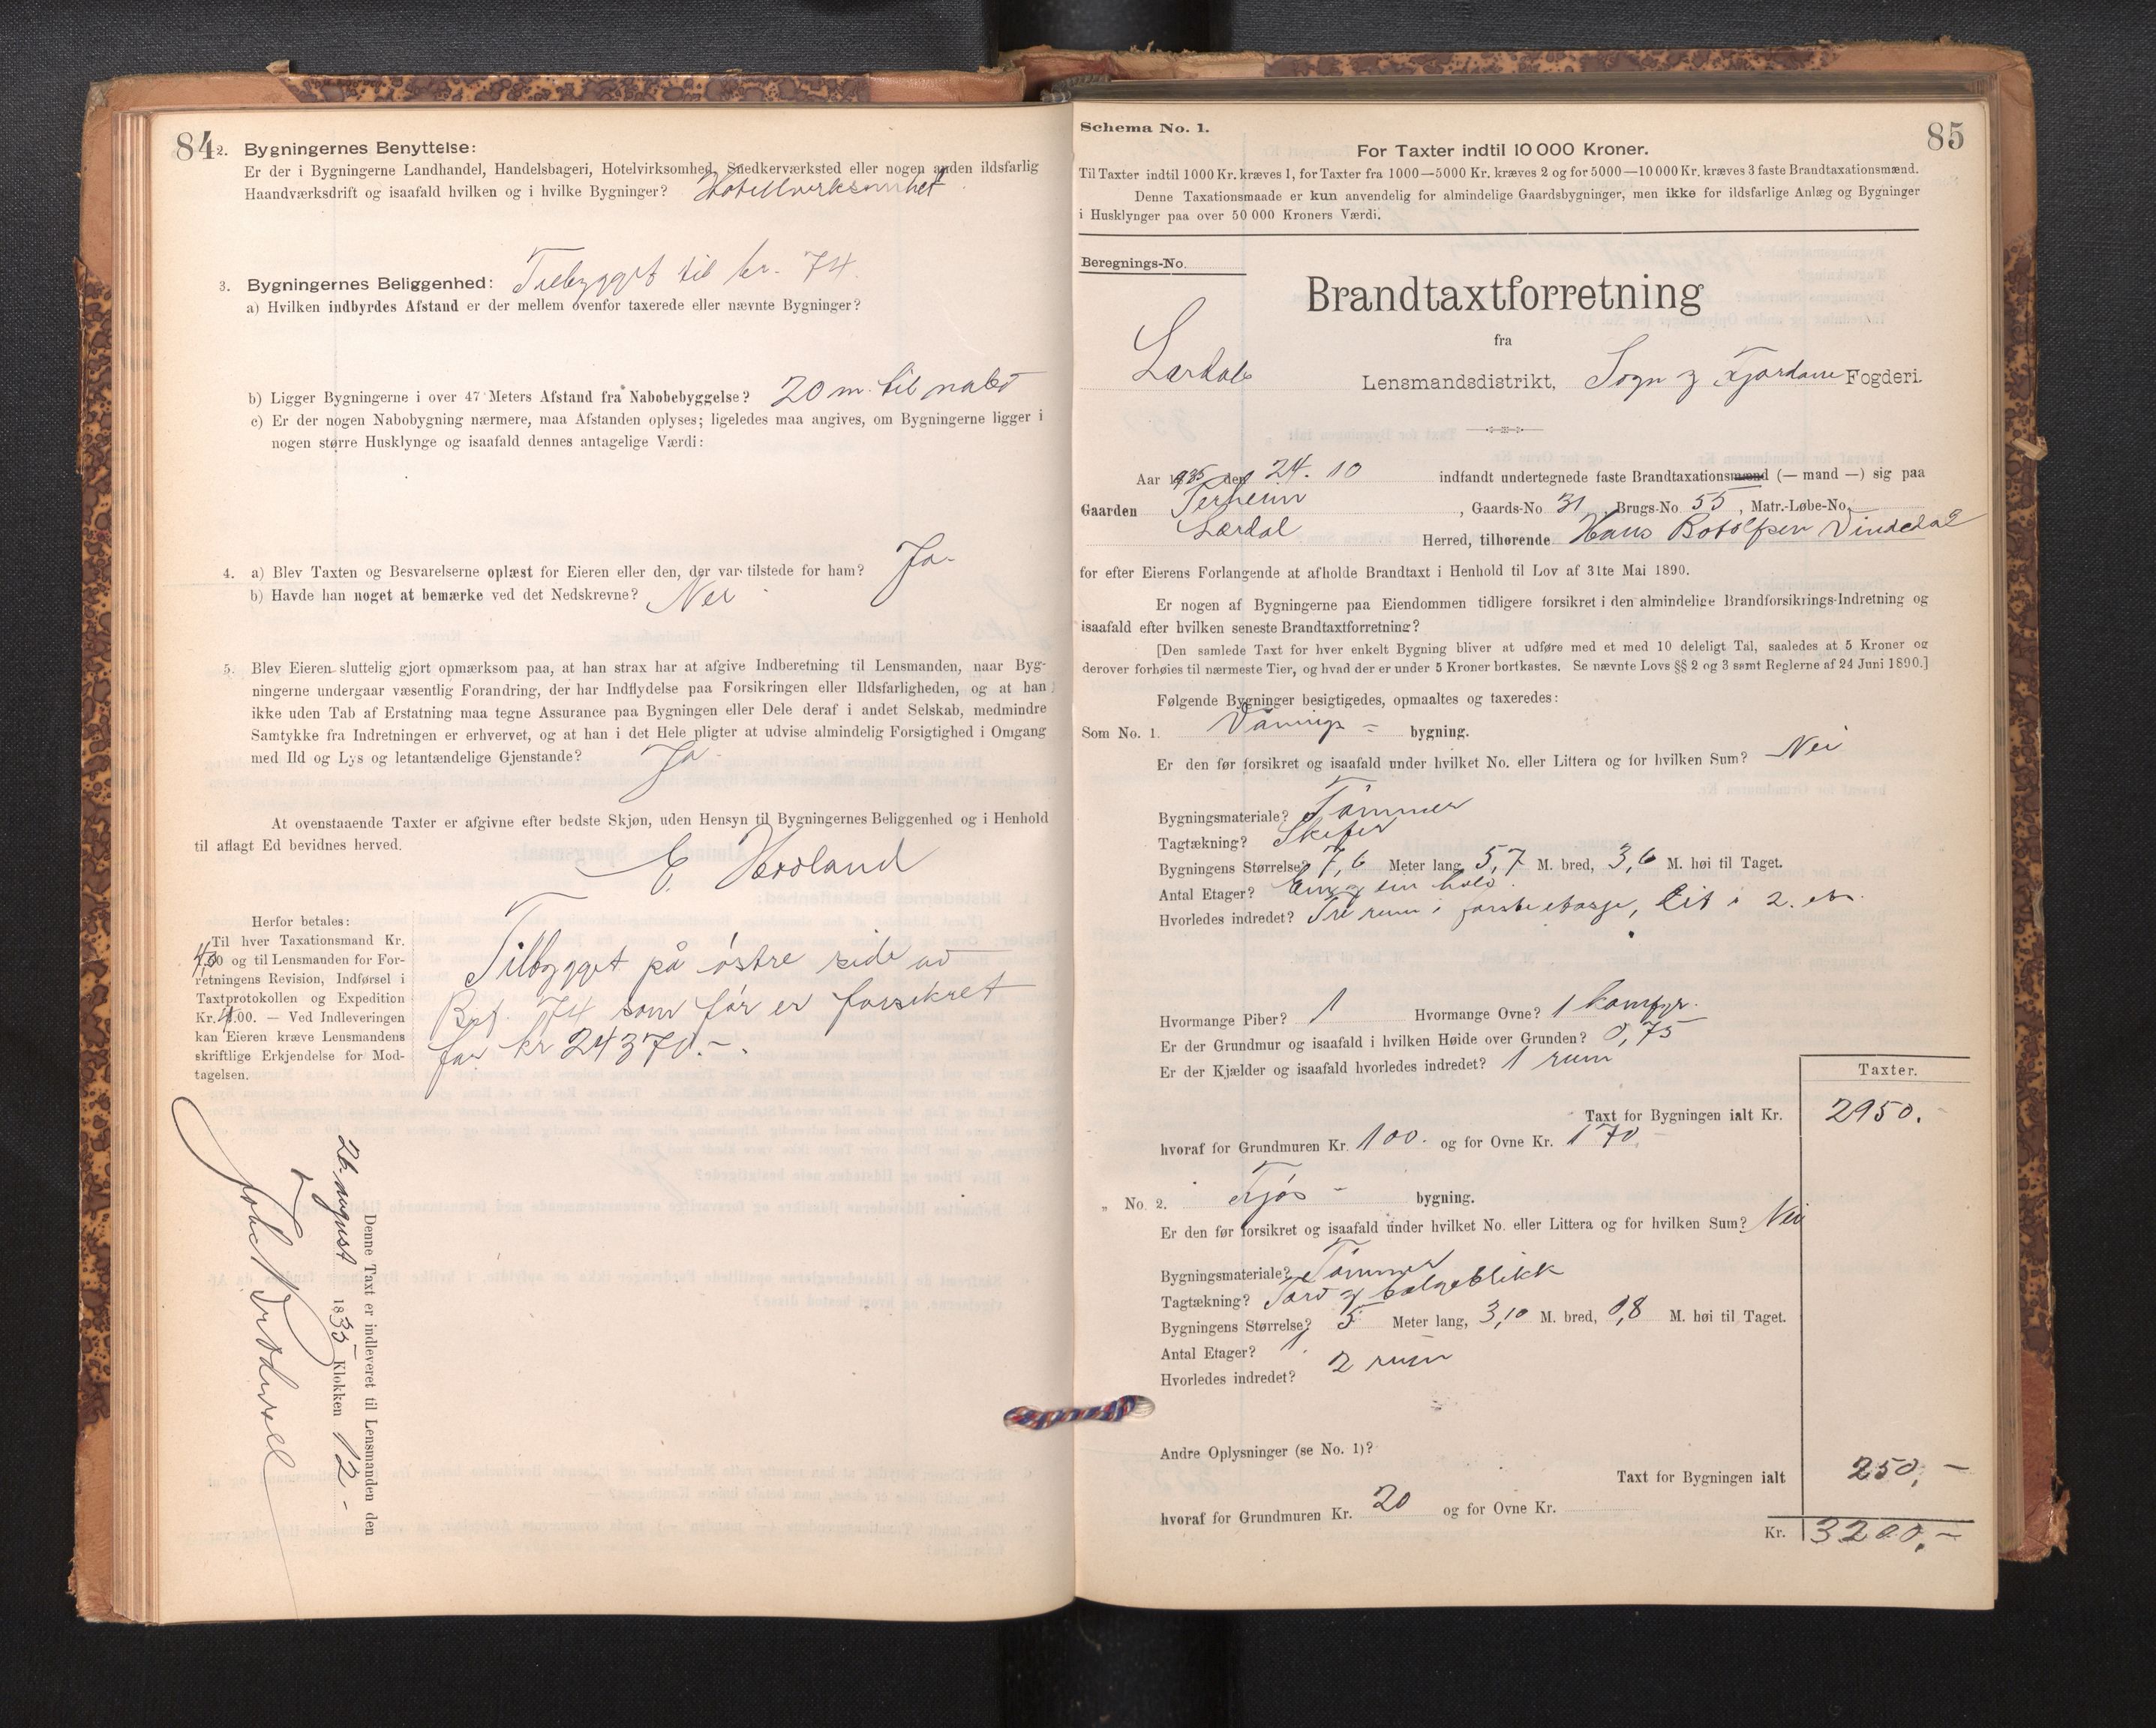 84
2. Bygningernes Benyttelse:
Er der i Bygningerne Landhandel, Handelsbageri, Hotelvirksomhed, Snedkerværksted eller nogen anden ildsfarlig
Haandværksdrift og isaafald hvilken og i hvilke Bygninger? Hotellvirksomhet
3. Bygningernes Beliggenhed: Tilbygget til br. 74.
a) Hvilken indbyrdes Afstand er der mellem ovenfor taxerede eller nævnte Bygninger?
b) Ligger Bygningerne i over 47 Meters Afstand fra Nabobebyggelse? 20 m. til nabo
c) Er der nogen Nabobygning nærmere, maa Afstanden oplyses; ligeledes maa angives, om Bygningerne ligger i
nogen større Husklynge og isaafald dennes antagelige Værdi:
4. a) Blev Taxten og Besvarelserne oplæst for Eieren eller den, der var tilstede for ham? Ja-
b) Havde han noget at bemærke ved det Nedskrevne? Nei
5. Blev Eieren sluttelig gjort opmærksom paa, at han strax har at afgive Indberetning til Lensmanden, naar Byg-
ningerne undergaar væsentlig Forandring, der har Indflydelse paa Forsikringen eller Ildsfarligheden, og at han
ikke uden Tab af Erstatning maa tegne Assurance paa Bygningen eller Dele deraf i andet Selskab, medmindre
Samtykke fra Indretningen er erhvervet, og at han i det Hele pligter at udvise almindelig Forsigtighed i Omgang
med Ild og Lys og letantændelige Gjenstande? Ja-
At ovenstaaende Taxter er afgivne efter bedste Skjøn, uden Hensyn til Bygningernes Beliggenhed og i Henhold
til aflagt Ed bevidnes herved.
E.
Herfor betales:
Til hver Taxationsmand Kr.
4,00 og til Lensmanden for For-
retningens Revision, Indførsel i
Taxtprotokollen og Expedition
Kr. 4.00. — Ved Indleveringen
kan Eieren kræve Lensmandens
skriftlige Erkjendelse for Mod-
tagelsen.
Tilbygget på østre side av
Byg. 74 som før er forsikret
for kr 24370.-.
Denne Taxt er indleveret til Lensmanden den
26. august 1835 Klokken 12 -
85
Schema No. 1.
For Taxter indtil 10 000 Kroner.
Til Taxter indtil 1000 Kr. kræves 1, for Taxter fra 1000—5000 Kr. kræves 2 og for 5000—10 000 Kr. kræves 3 faste Brandtaxationsmænd.
Denne Taxationsmaade er kun anvendelig for almindelige Gaardsbygninger, men ikke for ildsfarlige Anlæg og Bygninger
i Husklynger paa over 50 000 Kroners Værdi.
Beregnings-No.
Brandtaxtforretning
fra
Lærdals Lensmandsdistrikt, Sogn og Fjordane Fogderi.
Aar 1935 den 24. 10 indfandt undertegnede faste Brandtaxationsmænd (— mand —) sig paa
Gaarden , Gaards-No 31 , Brugs-No 55 , Matr.-Løbe-No.
Lærdal Herred, tilhørende Hans Botolfsen Vindedal
for efter Eierens Forlangende at afholde Brandtaxt i Henhold til Lov af 31te Mai 1890.
Er nogen af Bygningerne paa Eiendommen tidligere forsikret i den almindelige Brandforsikrings-Indretning og
isaafald efter hvilken seneste Brandtaxtforretning?
[Den samlede Taxt for hver enkelt Bygning bliver at udføre med et med 10 deleligt Tal, saaledes at 5 Kroner og
derover forhøies til nærmeste Tier, og hvad der er under 5 Kroner bortkastes. Se nævnte Lovs §§ 2 og 3 samt Reglerne af 24 Juni 1890.]
Følgende Bygninger besigtigedes, opmaaltes og taxeredes:
Som No. 1. Vånings - bygning.
Er den før forsikret og isaafald under hvilket No. eller Littera og for hvilken Sum? Nei
Bygningsmateriale? Tømmer
Tagtækning? Skifer
Bygningens Størrelse? 7,6 Meter lang, 5,7 M. bred, 3,6 M. høi til Taget.
Antal Etager? En og ein halv.
Hvorledes indredet? Tre rum i første etasje, Eit i 2. et.
Hvormange Piber? 1 Hvormange Ovne? 1 komfyr.
Er der Grundmur og isaafald i hvilken Høide over Grunden? 0,75
Er der Kjælder og isaafald hvorledes indredet? 1 rum
Taxter.
Taxt for Bygningen ialt Kr. 2950.
hvoraf for Grundmuren Kr. 100. og for Ovne Kr. 170
„ No. 2. Fjøs - bygning.
Er den før forsikret og isaafald under hvilket No. eller Littera og for hvilken Sum? Nei
Bygningsmateriale? Tømmer
Tagtækning? Torv og bølgeblikk
Bygningens Størrelse? 5 Meter lang, 3,10 M. bred, 0,8 M. høi til Taget.
Antal Etager? 1.
Hvorledes indredet? 2 rum
Andre Oplysninger (se No. 1)?
Taxt for Bygningen ialt 250,-
hvoraf for Grundmuren Kr. 20 og for Ovne Kr.
Kr. 3200,-